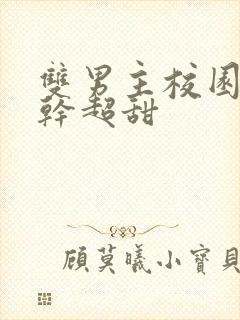 雙男主校園
幹超甜
顧莫曦小寶貝